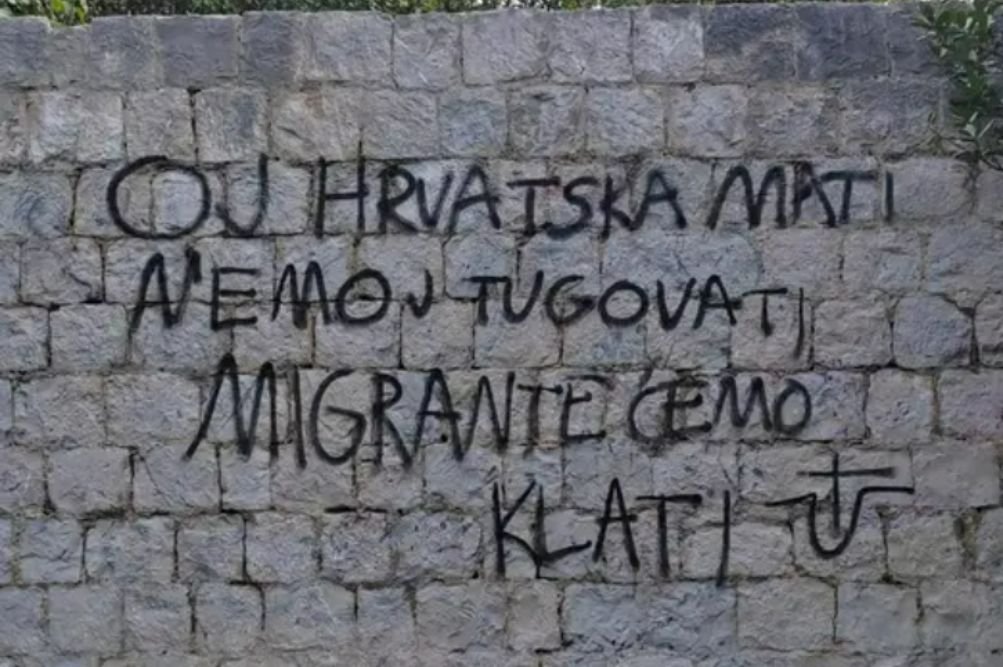 OJ HRVATSKA MATI
NEMOJ TUGOVATI
MIGRANTE ĆEMO
KLATI